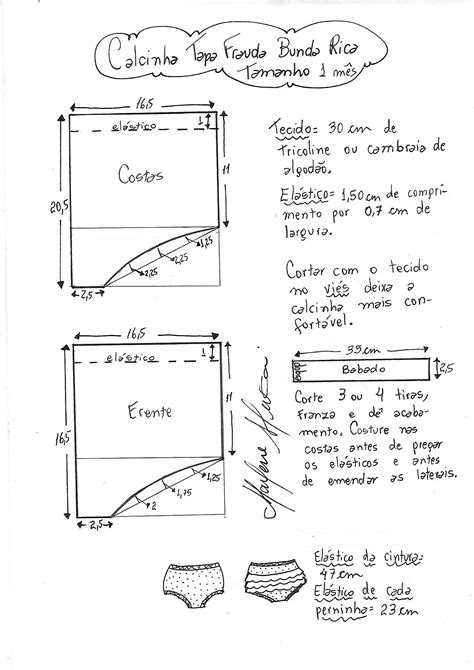 Calcinha Tapa Frauda Bunda Rica
Tamanho 1 mês
16,5
elástico
1
Costas
20,5
11
1,25
2,25
2,25
2,5
Tecido= 30 cm de
tricoline ou cambraia de
algodão.
Elástico= 1,50cm de compri
mento por 0,7 cm de
largura.
Cortar com o tecido
no viés deixa a
calcinha mais con-
fortável.
16,5
elástico
1
Frente
16,5
11
1,25
1,75
2
2,5
35cm
Babado
2,5
Corte 3 ou 4 tiras,
franza e dê acaba-
mento. Costure nas
costas antes de pregar
os elásticos e antes
de emendar as laterais.
Elástico da cintura=
47cm
Elástico de cada
perninha= 23cm